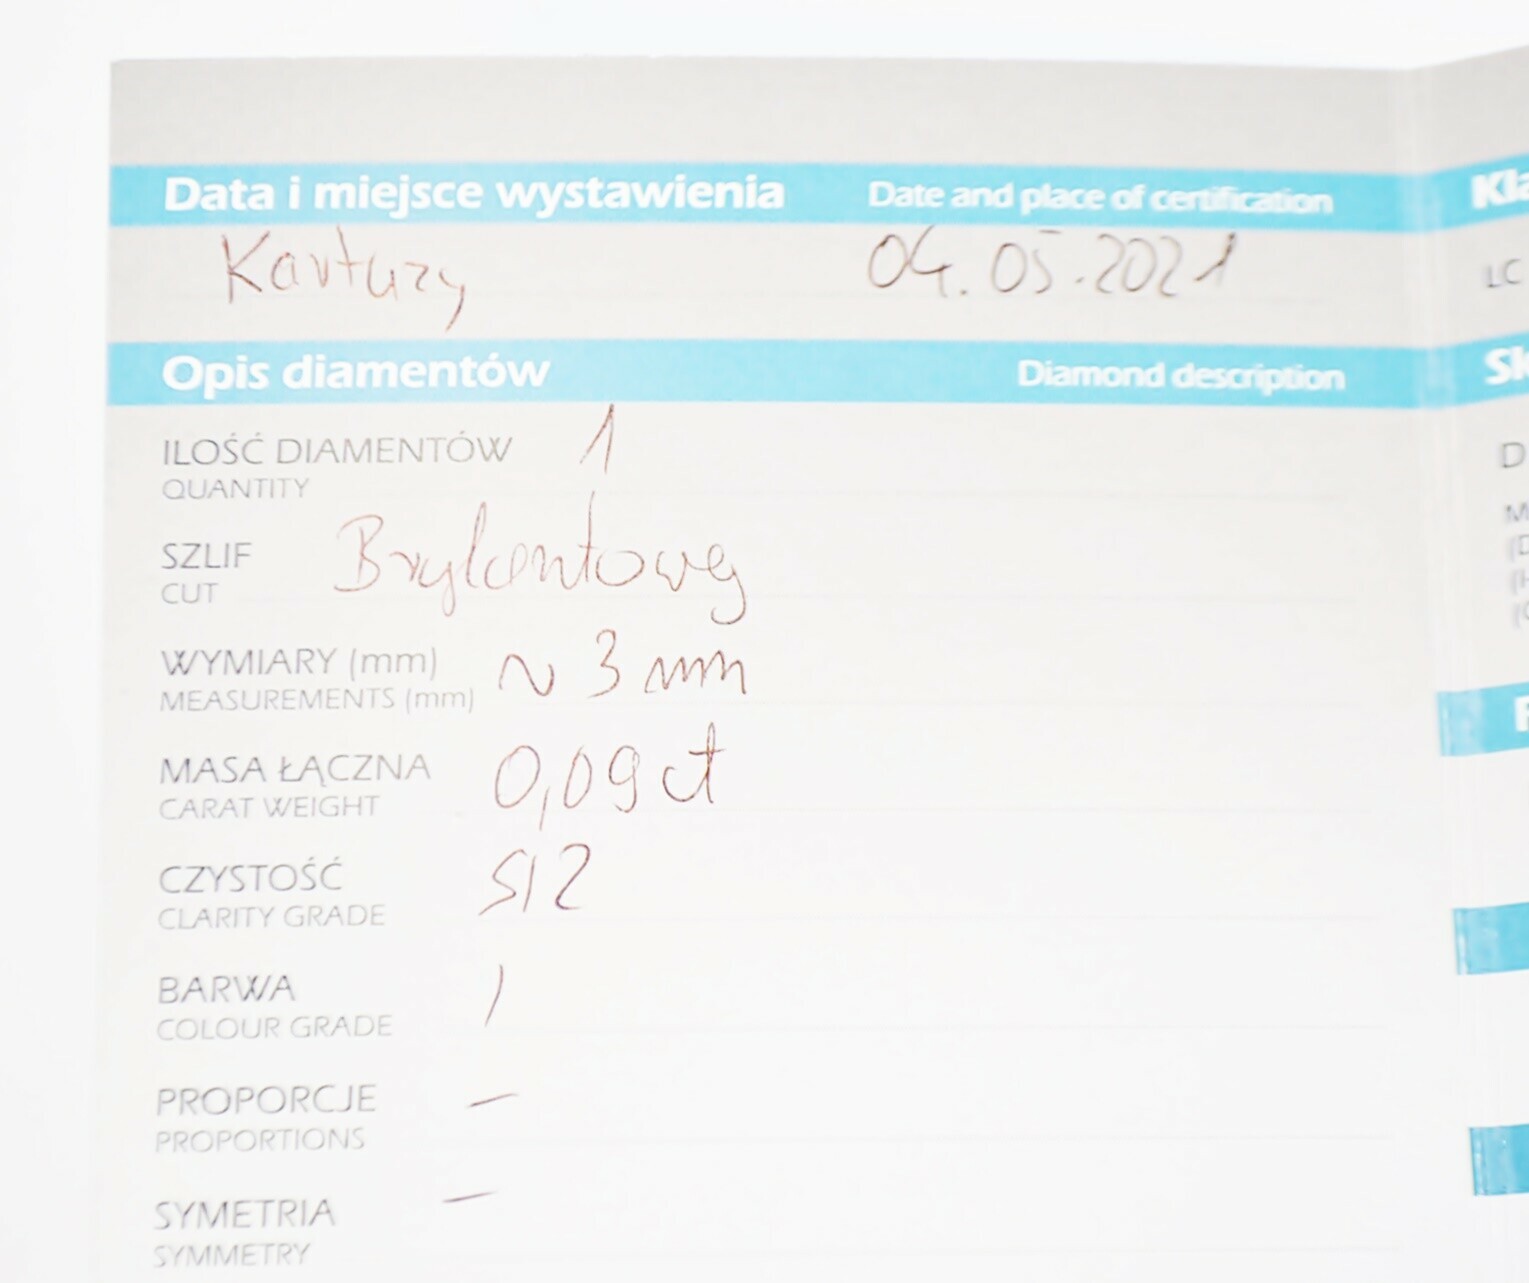 Data i miejsce wystawienia Date and place of certification
Kartuzy 04.05.2021
Opis diamentów Diamond description
ILOŚĆ DIAMENTÓW 1
QUANTITY
SZLIF Brylantowy
CUT
WYMIARY (mm) ~ 3 mm
MEASUREMENTS (mm)
MASA ŁĄCZNA 0,09 ct
CARAT WEIGHT
CZYSTOŚĆ SI2
CLARITY GRADE
BARWA I
COLOUR GRADE
PROPORCJE –
PROPORTIONS
SYMETRIA –
SYMMETRY
LC
D